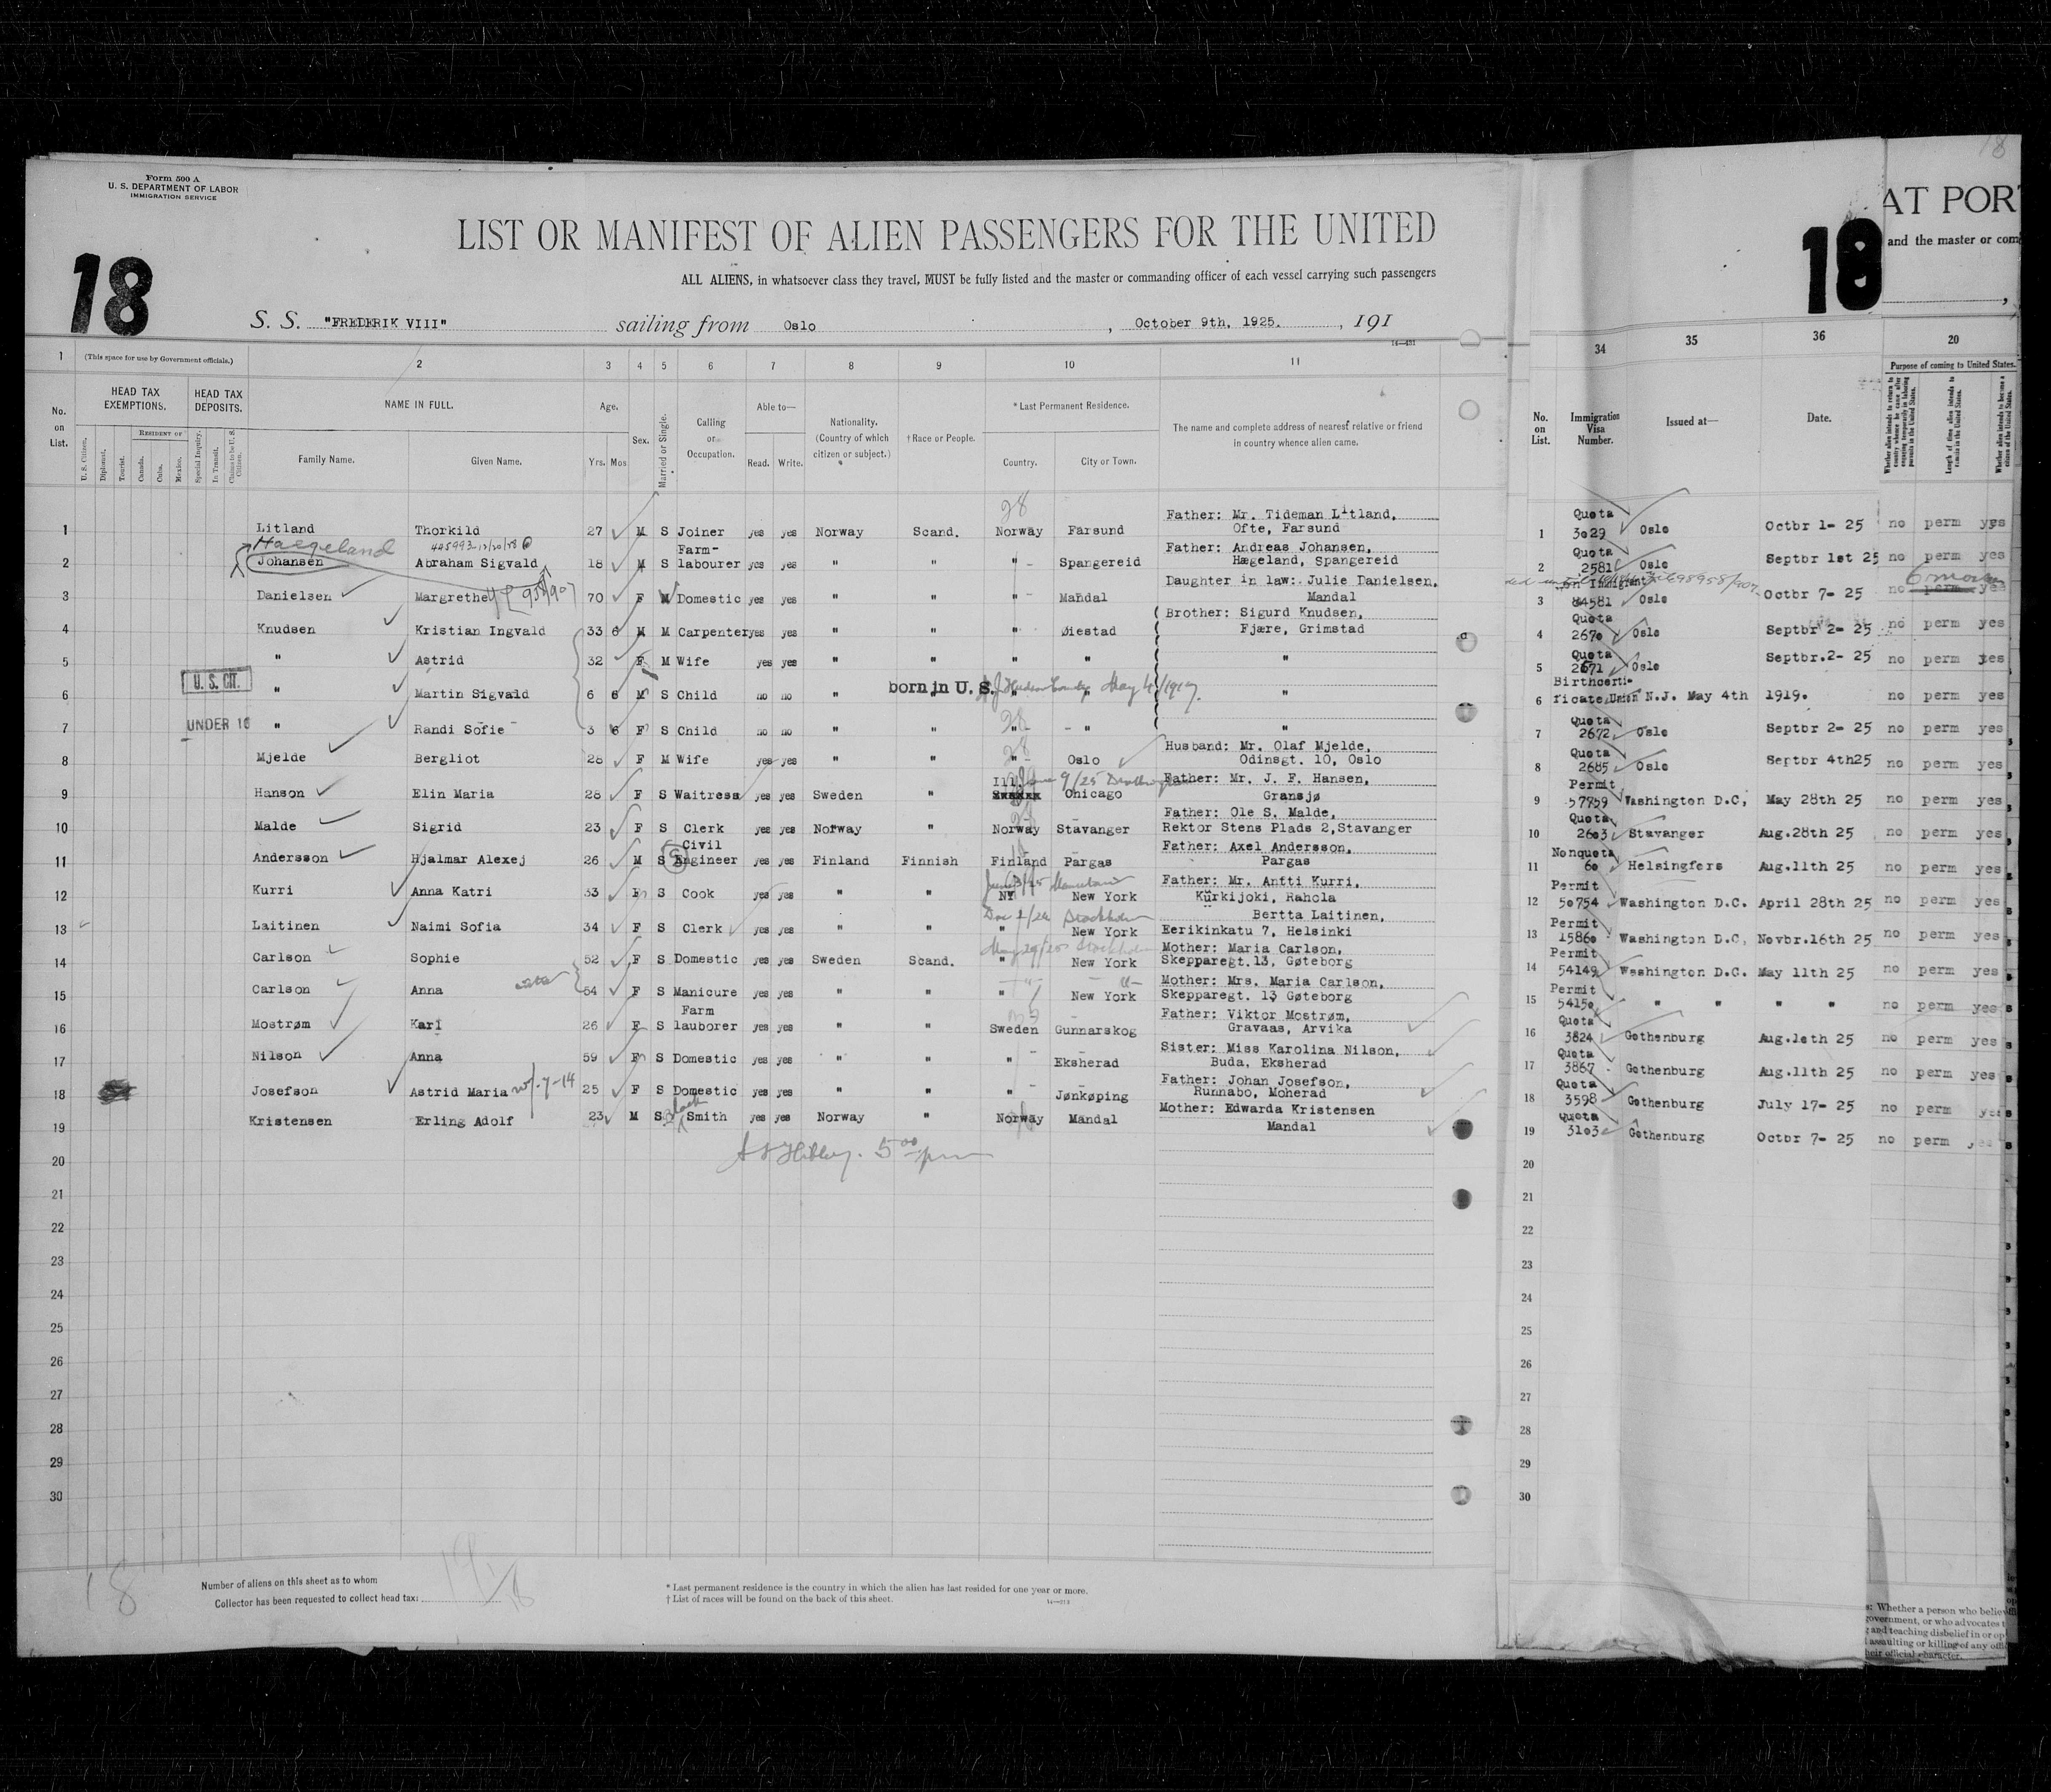 18
Form 500 A
U. S. DEPARTMENT OF LABOR
IMMIGRATION SERVICE
AT POR
18
18
and the master or com
LIST OR MANIFEST OF ALIEN PASSENGERS FOR THE UNITED
ALL ALIENS, in whatsoever class they travel, MUST be fully listed and the master or commanding officer of each vessel carrying such passengers
S. S. "FREDERIK VIII" sailing from Oslo , October 9th, 1925. , 191
1 (This space for use by Government officials.) 2 3 4 5 6 7 8 9 10 11 34 35 36 20
No. on List. HEAD TAX EXEMPTIONS. HEAD TAX DEPOSITS. NAME IN FULL. Age. Sex. Married or Single. Calling or Occupation. Able to— Nationality. (Country of which citizen or subject.) †Race or People. *Last Permanent Residence. The name and complete address of nearest relative or friend in country whence alien came. No. on List. Immigration Visa Number. Issued at— Date. Purpose of coming to United States.
U. S. Citizen. Diplomat. Tourist. RESIDENT OF Canada. Cuba. Mexico. Special Inquiry. In Transit. Claims to be U. S. Citizen. Family Name. Given Name. Yrs. Mos Read. Write. Country. City or Town.
28 Father: Mr. Tideman Litland, Quota
1 Litland Thorkild 27 M S Joiner yes yes Norway Scand. Norway Farsund Ofte, Farsund 1 3029 Oslo Octbr 1- 25 no perm yes
Haegeland 445993 Farm- Father: Andreas Johansen, Quota
2 Johansen Abraham Sigvald 18 M S labourer yes yes " " " Spangereid Hægeland, Spangereid 2 2581 Oslo Septbr 1st 25 no perm yes
Daughter in law: Julie Danielsen, Immigrant 6 mos
3 Danielsen Margrethe 70 F Domestic yes yes " " " Mandal Mandal 3 84581 Oslo Octbr 7- 25 no perm yes
Brother: Sigurd Knudsen, Quota
4 Knudsen Kristian Ingvald 33 6 M M Carpenter yes yes " " " Øiestad Fjære, Grimstad 4 2670 Oslo Septbr 2- 25 no perm yes
Quota
5 " Astrid 32 F M Wife yes yes " " " " " 5 2671 Oslo Septbr.2- 25 no perm yes
U. S. CIT. born in U. S. Hudson County May 4/1919. Birthcerti-
6 " Martin Sigvald 6 6 M S Child no no " " " " " 6 ficate Union N.J. May 4th 1919. no perm yes
UNDER 16 28 Quota
7 " Randi Sofie 3 6 F S Child no no " " " " " 7 2672 Oslo Septbr 2- 25 no perm yes
28 Husband: Mr. Olaf Mjelde, Quota
8 Mjelde Bergliot 28 F M Wife yes yes " " " Oslo Odinsgt. 10, Oslo 8 2685 Oslo Septbr 4th25 no perm yes
Ill. 9/25 Father: Mr. J. F. Hansen, Permit
9 Hanson Elin Maria 28 F S Waitress yes yes Sweden " Chicago Gransjø 9 57759 Washington D.C, May 28th 25 no perm yes
Father: Ole S. Malde, Quota
10 Malde Sigrid 23 F S Clerk yes yes Norway " Norway Stavanger Rektor Stens Plads 2,Stavanger 10 2603 Stavanger Aug.28th 25 no perm yes
Civil Father: Axel Andersson, Nonquota
11 Andersson Hjalmar Alexej 26 M S Engineer yes yes Finland Finnish Finland Pargas Pargas 11 60 Helsingfors Aug.11th 25 no perm yes
Father: Mr. Antti Kurri, Permit
12 Kurri Anna Katri 33 F S Cook yes yes " " NY New York Kurkijoki, Rahola 12 50754 Washington D.C. April 28th 25 no perm yes
Stockholm Bertta Laitinen, Permit
13 Laitinen Naimi Sofia 34 F S Clerk yes yes " " " New York Eerikinkatu 7, Helsinki 13 15860 Washington D.C, Novbr.16th 25 no perm yes
Stockholm Mother: Maria Carlson, Permit
14 Carlson Sophie 52 F S Domestic yes yes Sweden Scand. " New York Skepparegt.13, Gøteborg 14 54149 Washington D.C. May 11th 25 no perm yes
Mother: Mrs. Maria Carlson, Permit
15 Carlson Anna 54 F S Manicure yes yes " " " New York Skepparegt. 13 Gøteborg 15 54150 " " " " no perm yes
Farm Father: Viktor Mostrøm, Quota
16 Mostrøm Karl 26 F S lauborer yes yes " " Sweden Gunnarskog Gravaas, Arvika 16 3824 Gothenburg Aug.10th 25 no perm yes
Sister: Miss Karolina Nilson, Quota
17 Nilson Anna 59 F S Domestic yes yes " " " Eksherad Buda, Eksherad 17 3867 Gothenburg Aug.11th 25 no perm yes
Father: Johan Josefson, Quota
18 Josefson Astrid Maria 25 F S Domestic yes yes " " " Jønkøping Runnabo, Moherad 18 3598 Gothenburg July 17- 25 no perm yes
Black Mother: Edwarda Kristensen Quota
19 Kristensen Erling Adolf 23 M S Smith yes yes Norway " Norway Mandal Mandal 19 3103 Gothenburg Octbr 7- 25 no perm
20 20
21 21
22 22
23 23
24 24
25 25
26 26
27 27
28 28
29 29
30 30
18
Number of aliens on this sheet as to whom
Collector has been requested to collect head tax:
* Last permanent residence is the country in which the alien has last resided for one year or more.
† List of races will be found on the back of this sheet.
Whether a person who believ
government, or who advocates t
and teaching disbelief in or op
assaulting or killing of any offi
heir official character.